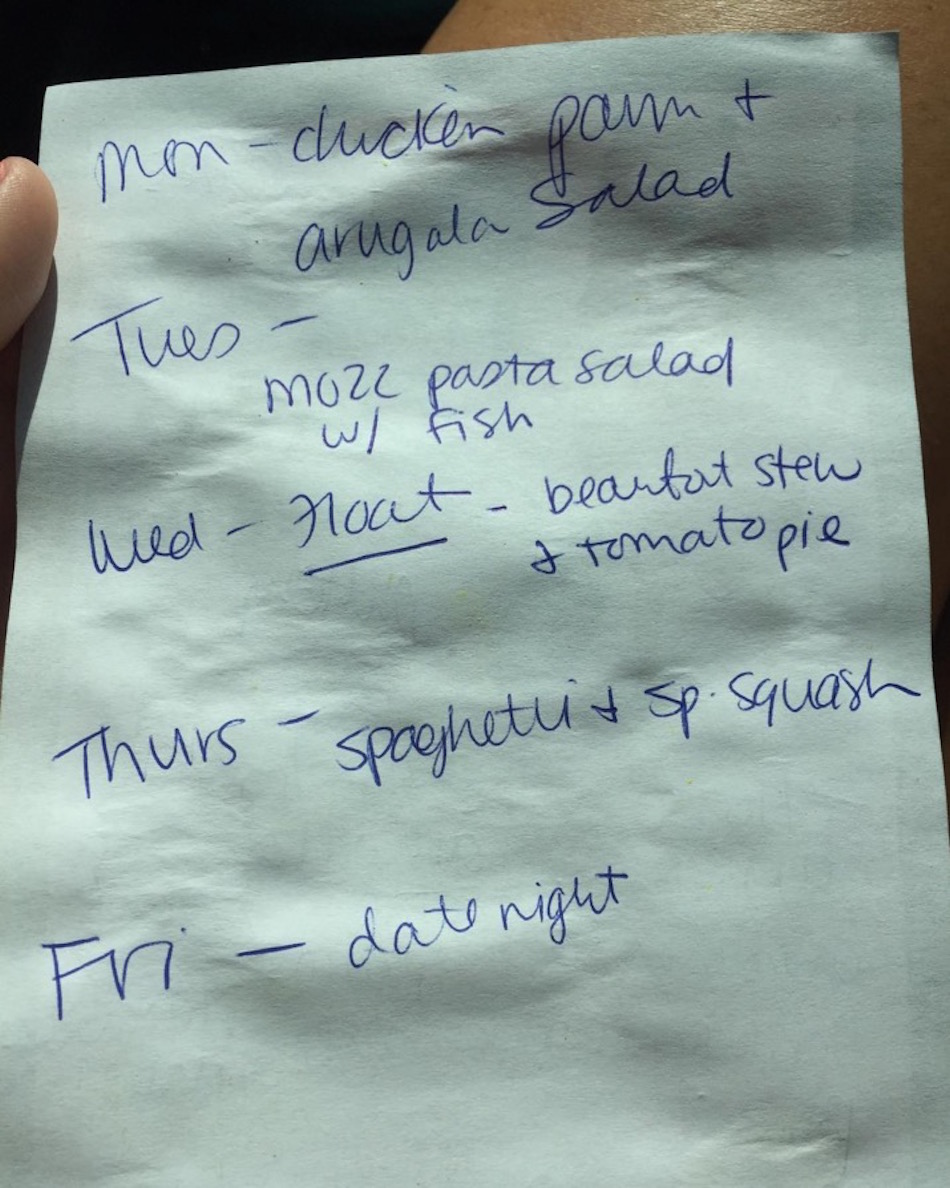 Mon - chicken parm +
arugala salad
Tues -
mozz pasta salad
w/ fish
Wed - Float - beaufort stew
& tomato pie
Thurs - spaghetti & sp. squash
Fri - date night